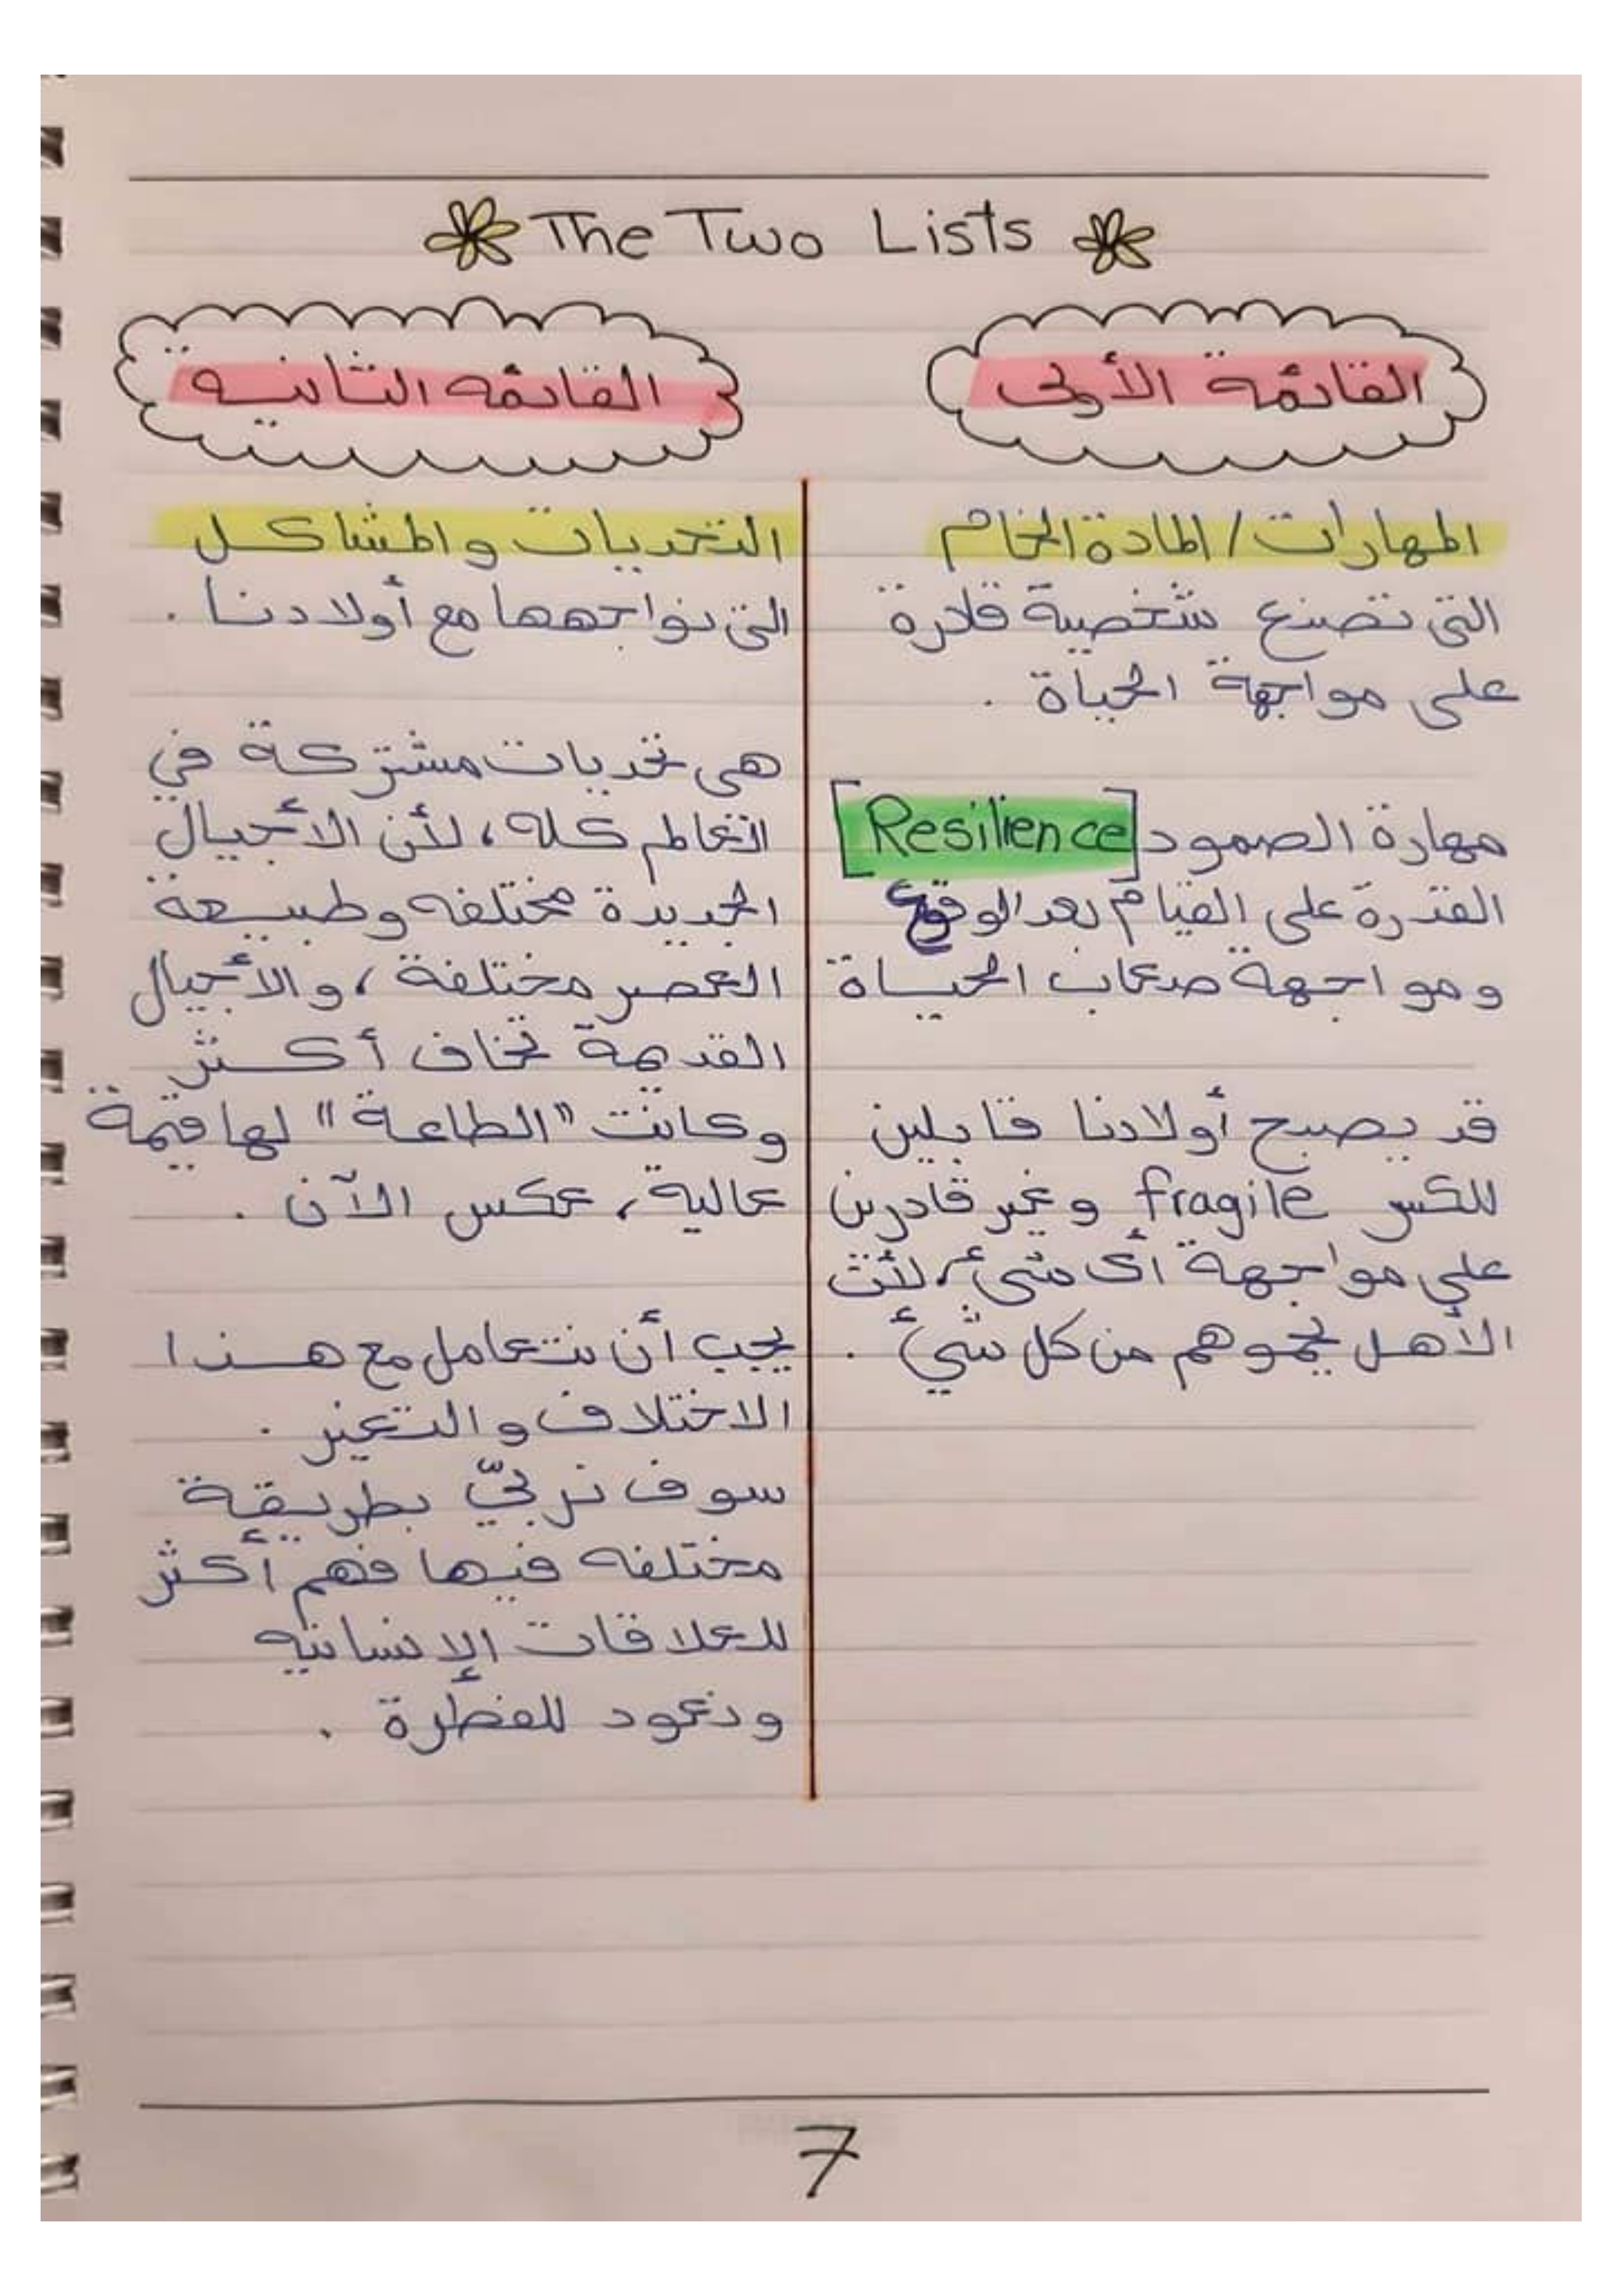 The Two Lists
القائمة الأولى
المهارات / المادة الخام
التى تصنع شخصية قادرة
على مواجهة الحياة .
مهارة الصمود [Resilience]
القدرة على القيام بعد الوقوع
ومواجهة صعاب الحياة
قد يصبح أولادنا قابلين
للكسر fragile وغير قادرين
على مواجهة أى شىء، لأن
الأهل يحموهم من كل شيء .
القائمه الثانيه
التحديات والمشاكل
التى نواجهها مع أولادنا .
هى تحديات مشتركة في
العالم كله، لأن الأجيال
الجديدة مختلفه وطبيعة
العصر مختلفة، والأجيال
القديمة تخاف أكثر
وكانت "الطاعة" لها قيمة
عالية، عكس الآن .
يجب أن نتعامل مع هذا
الاختلاف والتغير .
سوف نربيّ بطريقة
مختلفه فيها فهم أكثر
للعلاقات الإنسانيه
ونعود للفطرة .
7